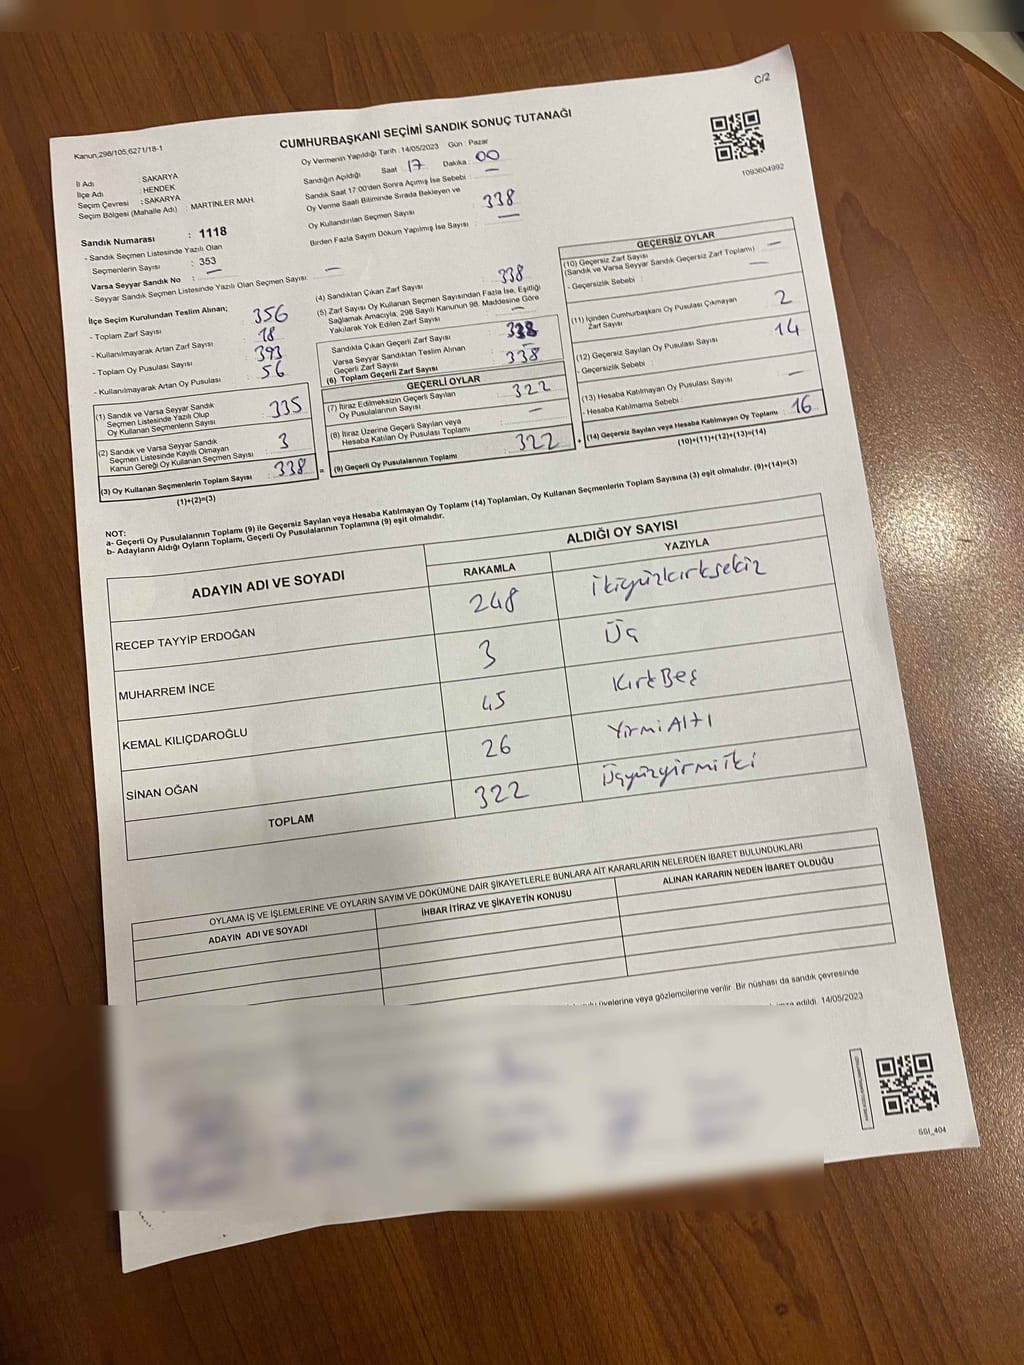 C/2
Kanun;298/105,6271/18-1
CUMHURBAŞKANI SEÇİMİ SANDIK SONUÇ TUTANAĞI
Oy Vermenin Yapıldığı Tarih : 14/05/2023 Gün : Pazar
1093604992
İl Adı : SAKARYA
İlçe Adı : HENDEK
Seçim Çevresi : SAKARYA
Seçim Bölgesi (Mahalle Adı) : MARTİNLER MAH.
Sandık Numarası : 1118
- Sandık Seçmen Listesinde Yazılı Olan
Seçmenlerin Sayısı : 353
Varsa Seyyar Sandık No : —
- Seyyar Sandık Seçmen Listesinde Yazılı Olan Seçmen Sayısı : —
Sandığın Açıldığı Saat : 17 Dakika : 00
Sandık Saat 17:00'den Sonra Açımış İse Sebebi : —
Oy Verme Saati Bitiminde Sırada Bekleyen ve
Oy Kullandırılan Seçmen Sayısı : 338
Birden Fazla Sayım Döküm Yapılmış İse Sayısı : —
İlçe Seçim Kurulundan Teslim Alınan;
- Toplam Zarf Sayısı : 356
- Kullanılmayarak Artan Zarf Sayısı : 18
- Toplam Oy Pusulası : 393
- Kullanılmayarak Artan Oy Pusulası : 56
(1) Sandık ve Varsa Seyyar Sandık
Seçmen Listesinde Yazılı Olup
Oy Kullanan Seçmenlerin Sayısı : 335
(2) Sandık ve Varsa Seyyar Sandık
Seçmen Listesinde Kayıtlı Olmayan
Kanun Gereği Oy Kullanan Seçmen Sayısı : 3
(3) Oy Kullanan Seçmenlerin Toplam Sayısı : 338
(1)+(2)=(3)
(4) Sandıktan Çıkan Zarf Sayısı : 338
(5) Zarf Sayısı Oy Kullanan Seçmen Sayısından Fazla İse, Eşitliği
Sağlamak Amacıyla, 298 Sayılı Kanunun 98. Maddesine Göre
Yakılarak Yok Edilen Zarf Sayısı : —
Sandıkta Çıkan Geçerli Zarf Sayısı : 338
Varsa Seyyar Sandıktan Teslim Alınan
Geçerli Zarf Sayısı : —
(6) Toplam Geçerli Zarf Sayısı : 338
GEÇERLİ OYLAR
(7) İtiraz Edilmeksizin Geçerli Sayılan
Oy Pusulalarının Sayısı : 322
(8) İtiraz Üzerine Geçerli Sayılan veya
Hesaba Katılan Oy Pusulası Toplamı : —
= (9) Geçerli Oy Pusulalarının Toplamı : 322
GEÇERSİZ OYLAR
(10) Geçersiz Zarf Sayısı : —
(Sandık ve Varsa Seyyar Sandık Geçersiz Zarf Toplamı)
- Geçersizlik Sebebi : —
(11) İçinden Cumhurbaşkanı Oy Pusulası Çıkmayan
Zarf Sayısı : 2
(12) Geçersiz Sayılan Oy Pusulası Sayısı : 14
- Geçersizlik Sebebi :
(13) Hesaba Katılmayan Oy Pusulası Sayısı : —
- Hesaba Katılmama Sebebi :
+ (14) Geçersiz Sayılan veya Hesaba Katılmayan Oy Toplamı : 16
(10)+(11)+(12)+(13)=(14)
NOT:
a- Geçerli Oy Pusulalarının Toplamı (9) ile Geçersiz Sayılan veya Hesaba Katılmayan Oy Toplamı (14) Toplamları, Oy Kullanan Seçmenlerin Toplam Sayısına (3) eşit olmalıdır. (9)+(14)=(3)
b- Adayların Aldığı Oyların Toplamı, Geçerli Oy Pusulalarının Toplamına (9) eşit olmalıdır.
ADAYIN ADI VE SOYADI ALDIĞI OY SAYISI
RAKAMLA YAZIYLA
RECEP TAYYİP ERDOĞAN 248 ikiyüzkırksekiz
MUHARREM İNCE 3 Üç
KEMAL KILIÇDAROĞLU 45 KırkBeş
SİNAN OĞAN 26 YirmiAltı
TOPLAM 322 Üçyüzyirmiiki
OYLAMA İŞ VE İŞLEMLERİNE VE OYLARIN SAYIM VE DÖKÜMÜNE DAİR ŞİKAYETLERLE BUNLARA AİT KARARLARIN NELERDEN İBARET BULUNDUKLARI
ADAYIN ADI VE SOYADI İHBAR İTİRAZ VE ŞİKAYETİN KONUSU ALINAN KARARIN NEDEN İBARET OLDUĞU
üyelerine veya gözlemcilerine verilir. Bir nüshası da sandık çevresinde
edildi. 14/05/2023